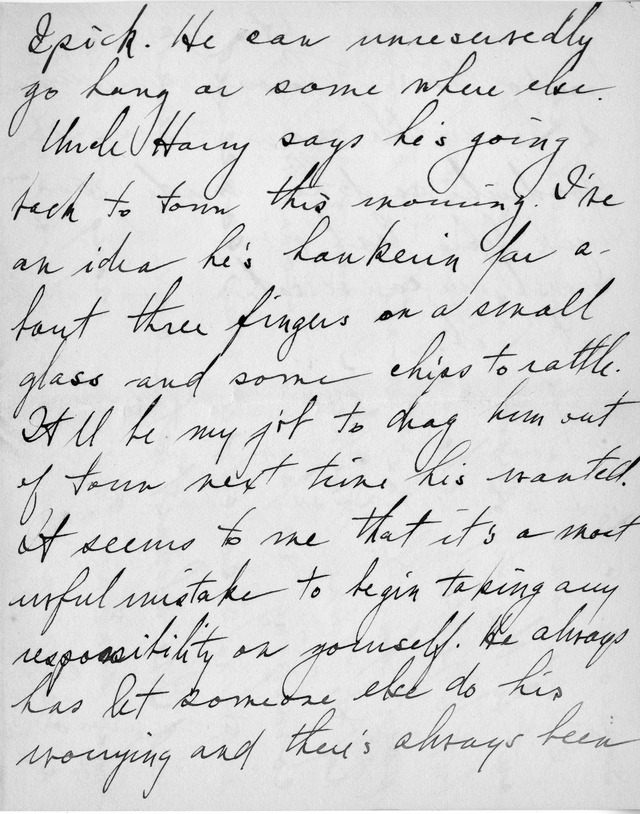 I pick. He can unreservedly
go hang or some where else.
Uncle Harry says he's going
back to town this morning. I've
an idea he's hankerin for a-
bout three fingers on a small
glass and some chips to rattle.
It'll be my job to drag him out
of town next time his wanted.
It seems to me that it's a most
awful mistake to begin taking any
responsibility on yourself. He always
has let someone else do his
worrying and there's always been